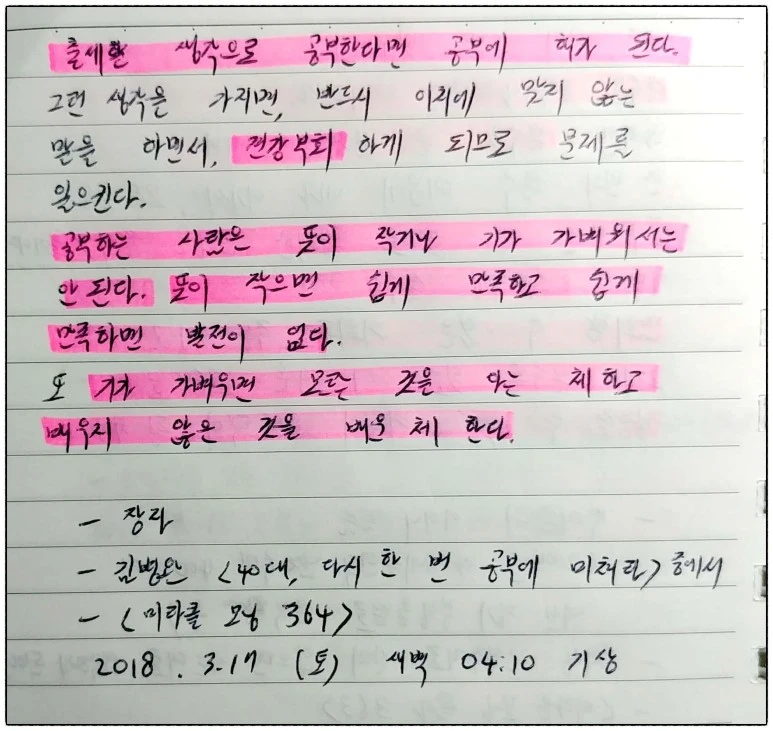 출세할 생각으로 공부한다면 공부에 허가 된다.
그런 생각을 가지면, 반드시 이치에 맞지 않는
말을 하면서, 견강부회 하게 되므로 문제를
일으킨다.
공부하는 사람은 뜻이 작거나 기가 가벼워서는
안 된다. 뜻이 작으면 쉽게 만족하고 쉽게
만족하면 발전이 없다.
또 기가 가벼우면 모르는 것을 아는 체 하고
배우지 않은 것을 배운 체 한다.
- 장자
- 김병완 <40대, 다시 한 번 공부에 미쳐라> 중에서
- <미라클 모닝 364>
2018. 3.17 (토) 새벽 04:10 기상